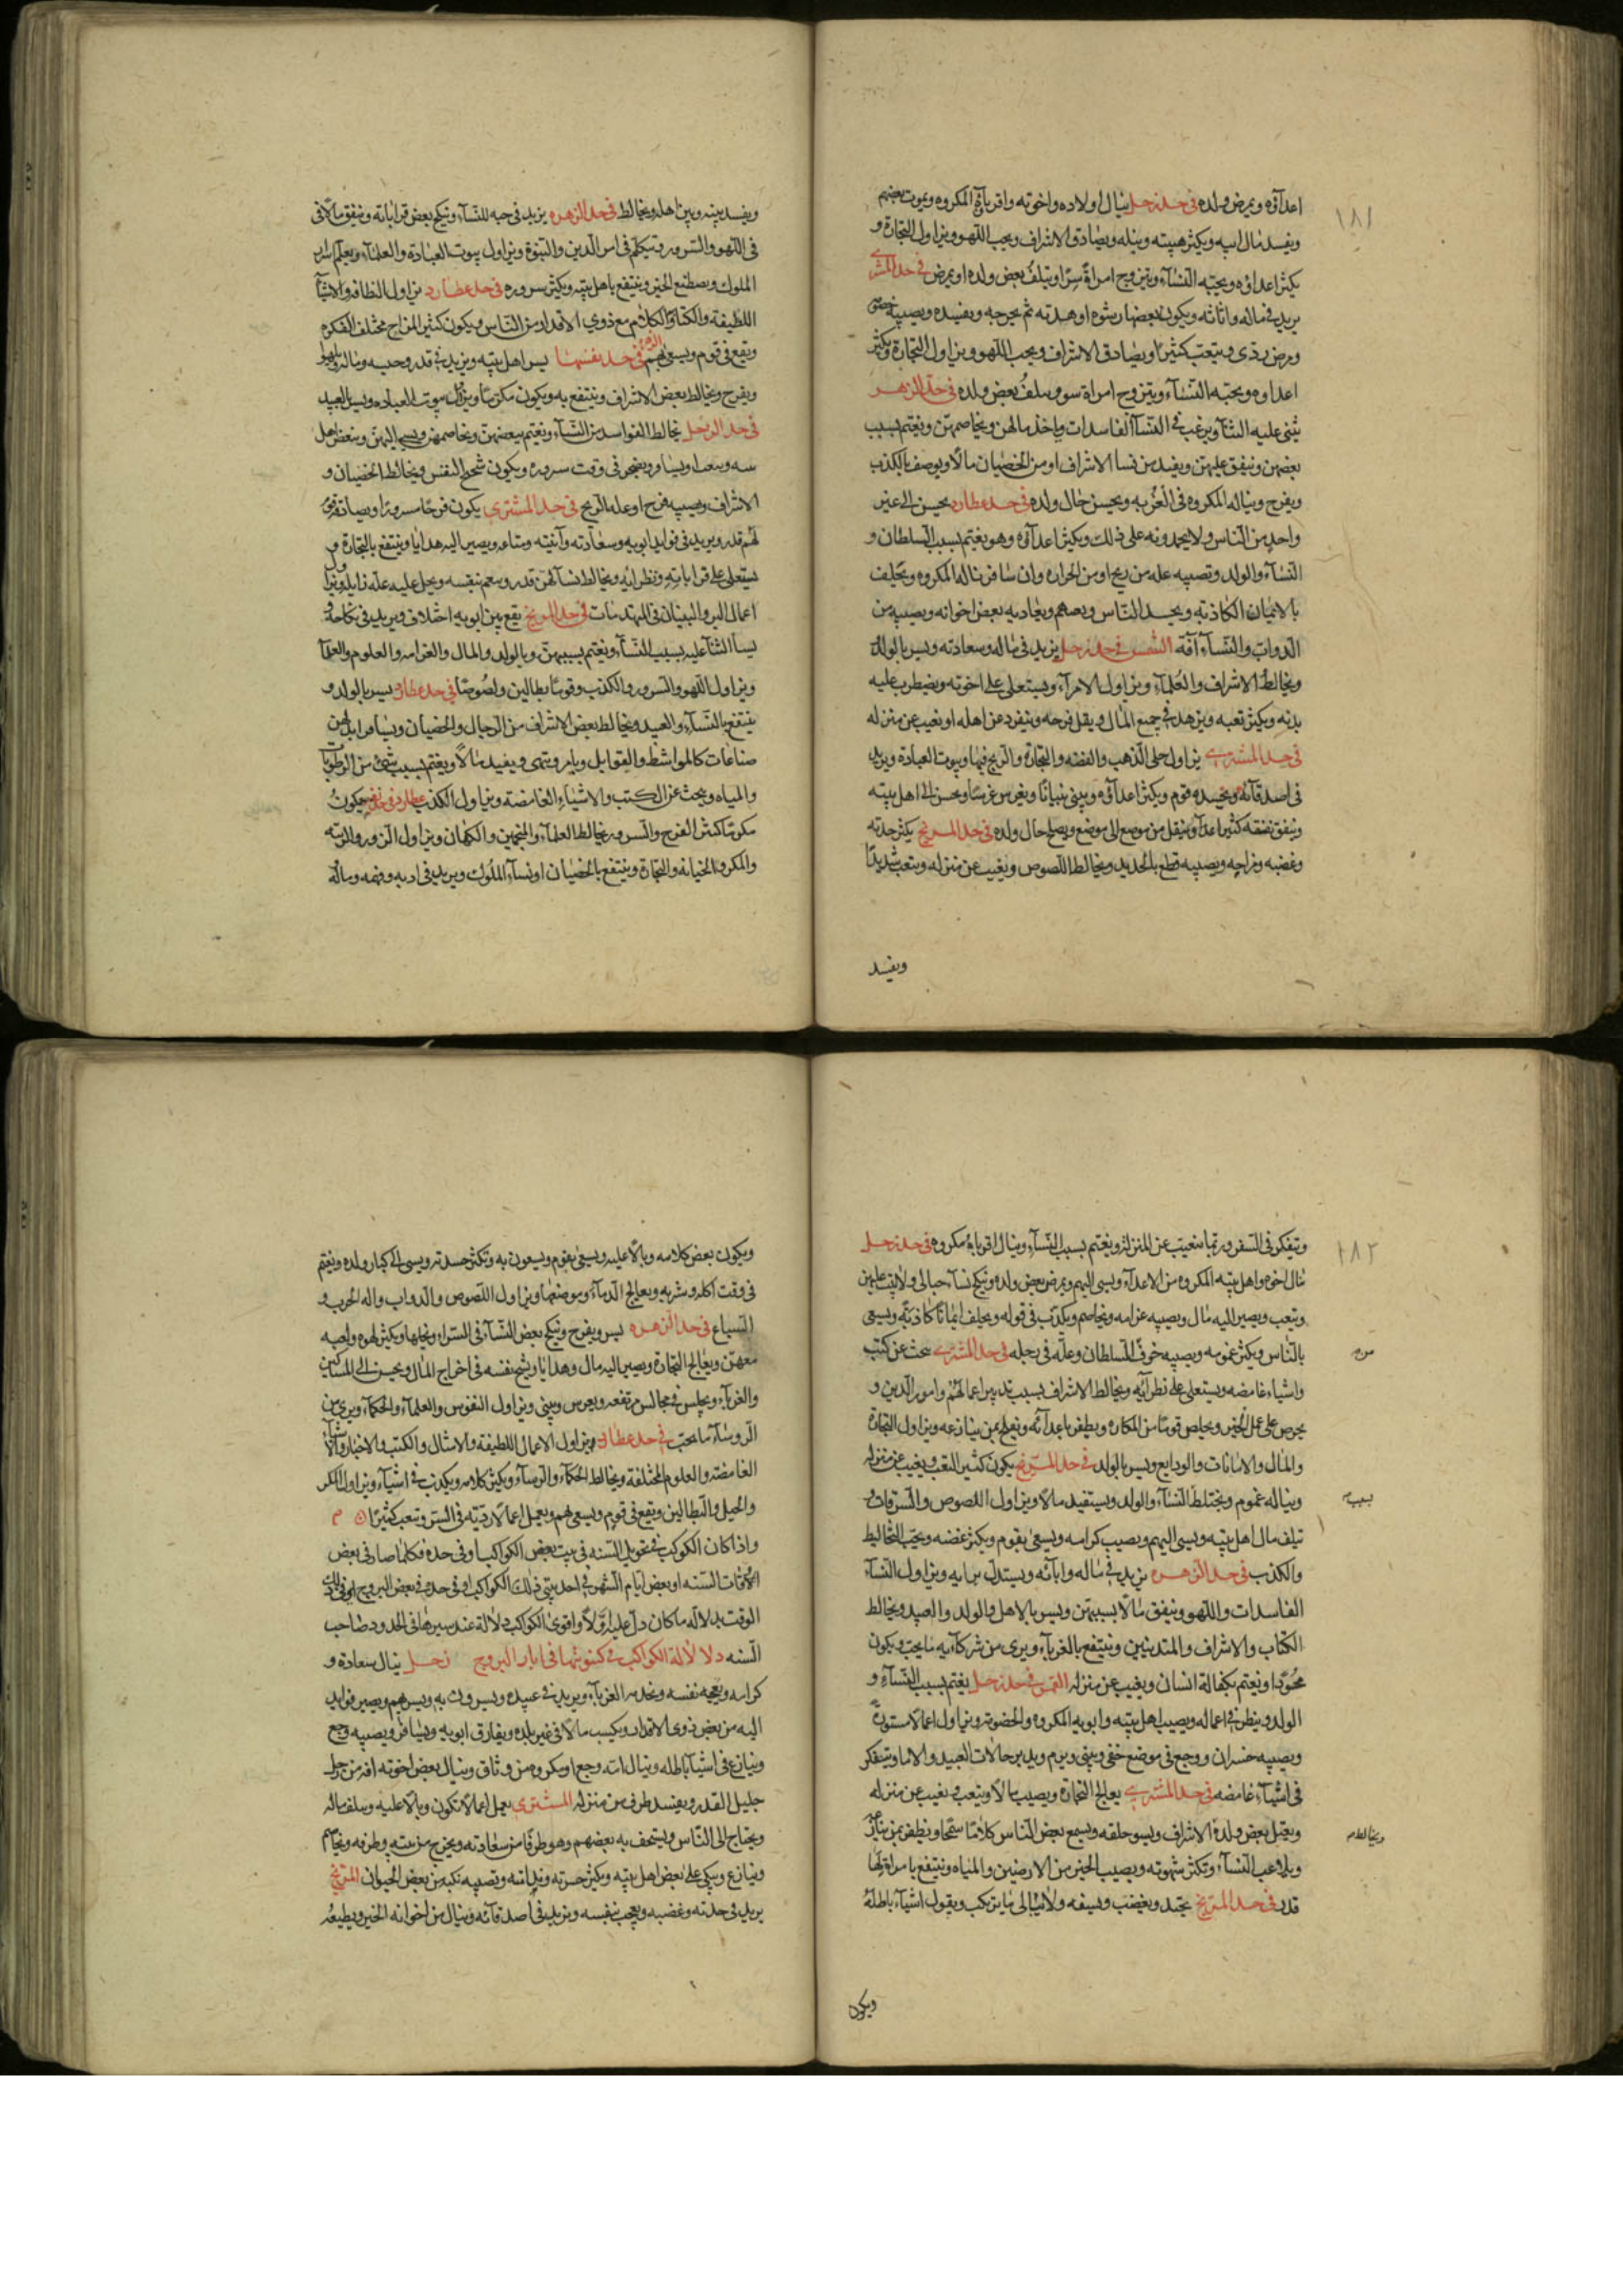 ١٨١
اعداؤه ويمرض ولده في حد زحل ينال اولاده واخوته واقرباؤه المكروه ويموت بعضهم
ويفسد مال ابيه ويكثر هيبته ونبله ويصادق الاشراف ويحب اللهو ويزاول التجارة و
يكثر اعداؤه ويحبّه النسآء ويتزوج امراة اويتلف بعض ولده او يمرض في حد المشترى
يزيد في ماله واثاثه ويكون بعضها رشوه او هدية ثم يخرجه ويفسده ويصيبه
ومرض ردى ويتعب كثيرا ويصادق الاشراف ويحب اللهو ويزاول التجارة ويكثر
اعداوه ويحبّه النسآء ويتزوج امراة سوء ويتلف بعض ولده في حد الزهره
يثنى عليه الثنآء ويرغب في النسآء الفاسدات وياخذ مالهن ويخاصمهن ويغتم بسبب
بعضهن وينفق عليهن ويفيد من نسا الاشراف او من الخصيان مالًا ويوصف بالكذب
ويفرح ويناله المكروه في الغربه ويحسن حال ولده في حد عطارد يحسن الى غير
واحد من الناس ولا يحمدونه على ذلك ويكثر اعدآؤه وهو يغتم بسبب السلطان و
النسآء والولد وتصيبه عله من ريح او من الحراره وان سافر ناله المكروه ويحلف
بالايمان الكاذبه ويحسد الناس ويعاديه بعض اخوانه ويصيبه من
الدواب والنسآء آفة الشمس في حد زحل يزيد في ماله وسعادته ويسر بالولد
ويخالط الاشراف والعلمآء ويزاول الامرآء ويستعلى على اخوته ويضطرب عليه
بدنه ويكثر تعبه ويزهد في جميع المال ويقل فرحه وينفرد عن اهله او يغيب عن منزله
في حد المشترى يزاول حلى الذهب والفضه والتجارة والربح فيها وبيوت العبادة ويزيد
في اصدقائه ويحسده قوم ويكثر اعدآؤه ويبنى بنيانًا ويغرس غرسًا ويحسن الى اهل بيته
وينفق نفقه كثيره وينتقل من موضع الى موضع ويصلح حال ولده في حد المريخ يكثر حدته
وغضبه ومزاجه ويصيبه قطع بالحديد ويخالط اللصوص ويغيب عن منزله ويتعب شديدًا
ويفسد
ويفسد بينه وبين اهله ويخالط في حد الزهره يزيد في حبه للنسآء وينكح بعض قراباته وينفق مالًا
في اللهو والسرور ويتكلم في امر الدين والنبوة ويزاول بيوت العبادة والعلمآء ويعلم اسرار
الملوك ويصطنع الخير وينتفع باهل بيته ويكثر سروره في حد عطارد يزاول النظافه والاشيآء
اللطيفة والكتاب والكلام مع ذوي الاقدار من الناس ويكون كثير المزاح مختلف الفكره
ويقع في قوم ويسعى بهم الزهرة في حد نفسها يسر اهل بيته ويزيد في قدره وحبه وماله
ويفرح ويخالط بعض الاشراف وينتفع به ويكون مكرمًا ويزاول بيوت العباده ويسر بالعبيد
في حد زحل يخالط الفواسد من النسآء ويغتم ببعضهن ويخاصمهن ويسىء اليهن وببعض اهل
ويضجر في وقت سروره ويكون شحيح النفس ويخالط الخصيان و
الاشراف ويصيبه قرح او عله الريح في حد المشترى يكون فرحًا مسرورًا ويصادق قوم
لهم قدر ويزيد في فوايد ابويه وسعادته وآنيته ومتاعه ويصير اليه هدايا وينتفع بالتجارة و
يستعلى على قراباته ونظرايه ويخالط نسآء لهن قدر وينعم نفسه
اعمال البر والبنيان في المتعبدات في حد المريخ يقع بين ابويه اختلاف ويزيد في نكاحه و
يسآ الثنآ عليه بسبب النسآء ويغتم بسببهن وبالولد والمال والغرامه والعلوم والعلمآ
ويزاول اللهو والسرور والكذب وقومًا بطالين ولصوصًا في حد عطارد يسر بالولد و
ينتفع بالنسآء والعبيد ويخالط بعض الاشراف من الرجال والخصيان ونسآء
صناعات كالمواشط والقوابل ويامر وينهى ويفيد مالًا ويغتم بسبب شىء من الرطوبات
والمياه ويبحث عن الكتب والاشيآء الغامضة ويزاول الكذب عطارد في حد نفسه يكون
مكرمًا كثير الفرح والسرور يخالط العلمآء والمنجمين والكهان ويزاول الزور والريبة
والمكر والخيانه والتجارة وينتفع بالخصيان او نسآء الملوك ويزيد في ادبه وفهمه وماله
١٨٢
ويتفكر في السفر وربما يغيب عن المنزل ويغتم بسبب النسآء وينال اقربآؤه مكروه في حد زحل
ينال اخوه واهل بيته المكروه من الاعدآء ويسى اليهم ويمرض بعض ولده وينكح نسآء حبالى
ويتعب ويصير اليه مال ويصيبه غرامه ويخاصم ويكذب في قوله ويحلف ايمانًا كاذبة ويسعى
بالناس ويكثر غمومه ويصيبه خوف السلطان وعلّه في رجله في حد المشترى يبحث عن كتب
واشيآء غامضه ويستعلى على نظرآئه ويخالط الاشراف بسبب تدبير اعمالهم وامور الدين و
يحرص على عمل الخير ويخلص قومًا من المكاره ويظفر باعدآئه ويغلب من ينازعه ويزاول التجارة
والمال والامانات والودايع ويسر بالولد في حد المريخ يكون كثير التعب ويغيب عن منزله
ويناله غموم ويختلط النسآء والولد ويستفيد مالًا ويزاول اللصوص والسرقات و
تلف مال اهل بيته ويسى اليهم ويصيب كرامه ويسعى بقوم ويكثر غضبه ويحب التخاليط
والكذب في حد الزهره يزيد في ماله وابآئه ويستدل برايه ويزاول النسآء
الفاسدات واللهو وينفق مالًا بسببهن ويسر بالاهل والولد والعبيد ويخالط
الكتّاب والاشراف والمتدينين وينتفع بالغربآء ويرى من شركآيه ما يحب ويكون
محبوبًا ويغتم بكفالة انسان ويغيب عن منزله القمر في حد زحل يغتم بسبب النسآء و
الولد وينظر في اعماله ويصيب اهل بيته وابويه المكروه والخصومة ويزاول اعمالا مستورة
ويصيبه خسران ووجع في موضع خفى ويبنى ويرم ويدبر حالات العبيد والاما ويتفكر
في اشيآء غامضه في حد المشترى يعالج التجارة ويصيب مالًا ويتعب ويغيب عن منزله
ويعتل بعض ولده الاشراف ويسو خلقه ويسمع بعض الناس كلامًا سمجًا ويظفر بمن ينازعه
ويلاعب النسآء وتكثر شهوته ويصيب الخير من الارضين والمياه وينتفع بامراة لها
قدر في حد المريخ يحتد ويغضب ويسفه ولا يبالى ما يرتكب ويقول اشيآء باطلة
ويكون
ويكون بعض كلامه وبالًا عليه ويسعى بقوم ويسعون به وتكثر حسدته ويسى الى كبار ولده ويغتم
في وقت اكله وشربه ويعالج الدمآء ويزاول اللصوص والدواب وآلة الحرب و
السباع في حد الزهره يسر ويفرح وينكح بعض النسآء في السر ويكثر لهوه ولعبه
معهن ويعالج التجارة ويصير اليه مال وهدايا ويشح نفسه في اخراج المال ويحسن الى المساكين
والغربآء ويجلس في مجالس مرتفعه ويغرس ويبنى ويزاول النفوس والعلمآء والحكمآء ويرى من
الروسآء ما يحب في حد عطارد يزاول الاعمال اللطيفة والامثال والكتب والاخبار والاشيآء
الغامضة والعلوم المختلفة ويخالط الحكمآء والروسآء ويكثر كلامه ويكذب في اشيآء ويزاول المكر
والحيل والبطالين ويقع في قوم ويسعى بهم ويعمل اعمالًا رديّة في السر ويتعب كثيرًا
واذا كان الكوكب في تحويل السنه في بيت بعض الكواكب او في حده فكلما صار في بعض
الاوقات السنه او بعض ايام الشهر في احد بيتى ذلك الكوكب او في حده في بعض البروج او في ذلك
الوقت يدل دلاله ما كان دل عليه اولًا واقوى الكواكب دلالة عند مسيرها في الحدود صاحب
السنه دلالة الكواكب في كينونتها في ابار البروج زحل ينال سعادة و
كرامه ويعجبه نفسه ويخدمه الغربآء ويزيد في عبيده ويسرون به ويسر بهم ويصير فوايد
اليه من بعض ذوى الاقدار ويكسب مالًا في غير بلده ويفارق ابويه ويسافر ويصيبه وجع
وينازع في اشيآ باطله وينال امّه وجع او مكروه من وثاق وينال بعض اخوته افه من رجل
جليل القدر ويفسد طرف من منزله المشترى يعمل اعمالًا تكون وبالًا عليه ويتلف ماله
ويحتاج الى الناس ويستخف به بعضهم وهو طرفا من سعادته ويخرج من بيته وطرفه ويخاصم
وينازع ويبكى على بعض اهل بيته ويكثر حسرته وندامته وتصيبه نكبه من بعض الحيوان المريخ
يزيد في حدته وغضبه ويعجب نفسه ويزيد في اصدقآئه وينال من اخوانه الخير ويطيعه